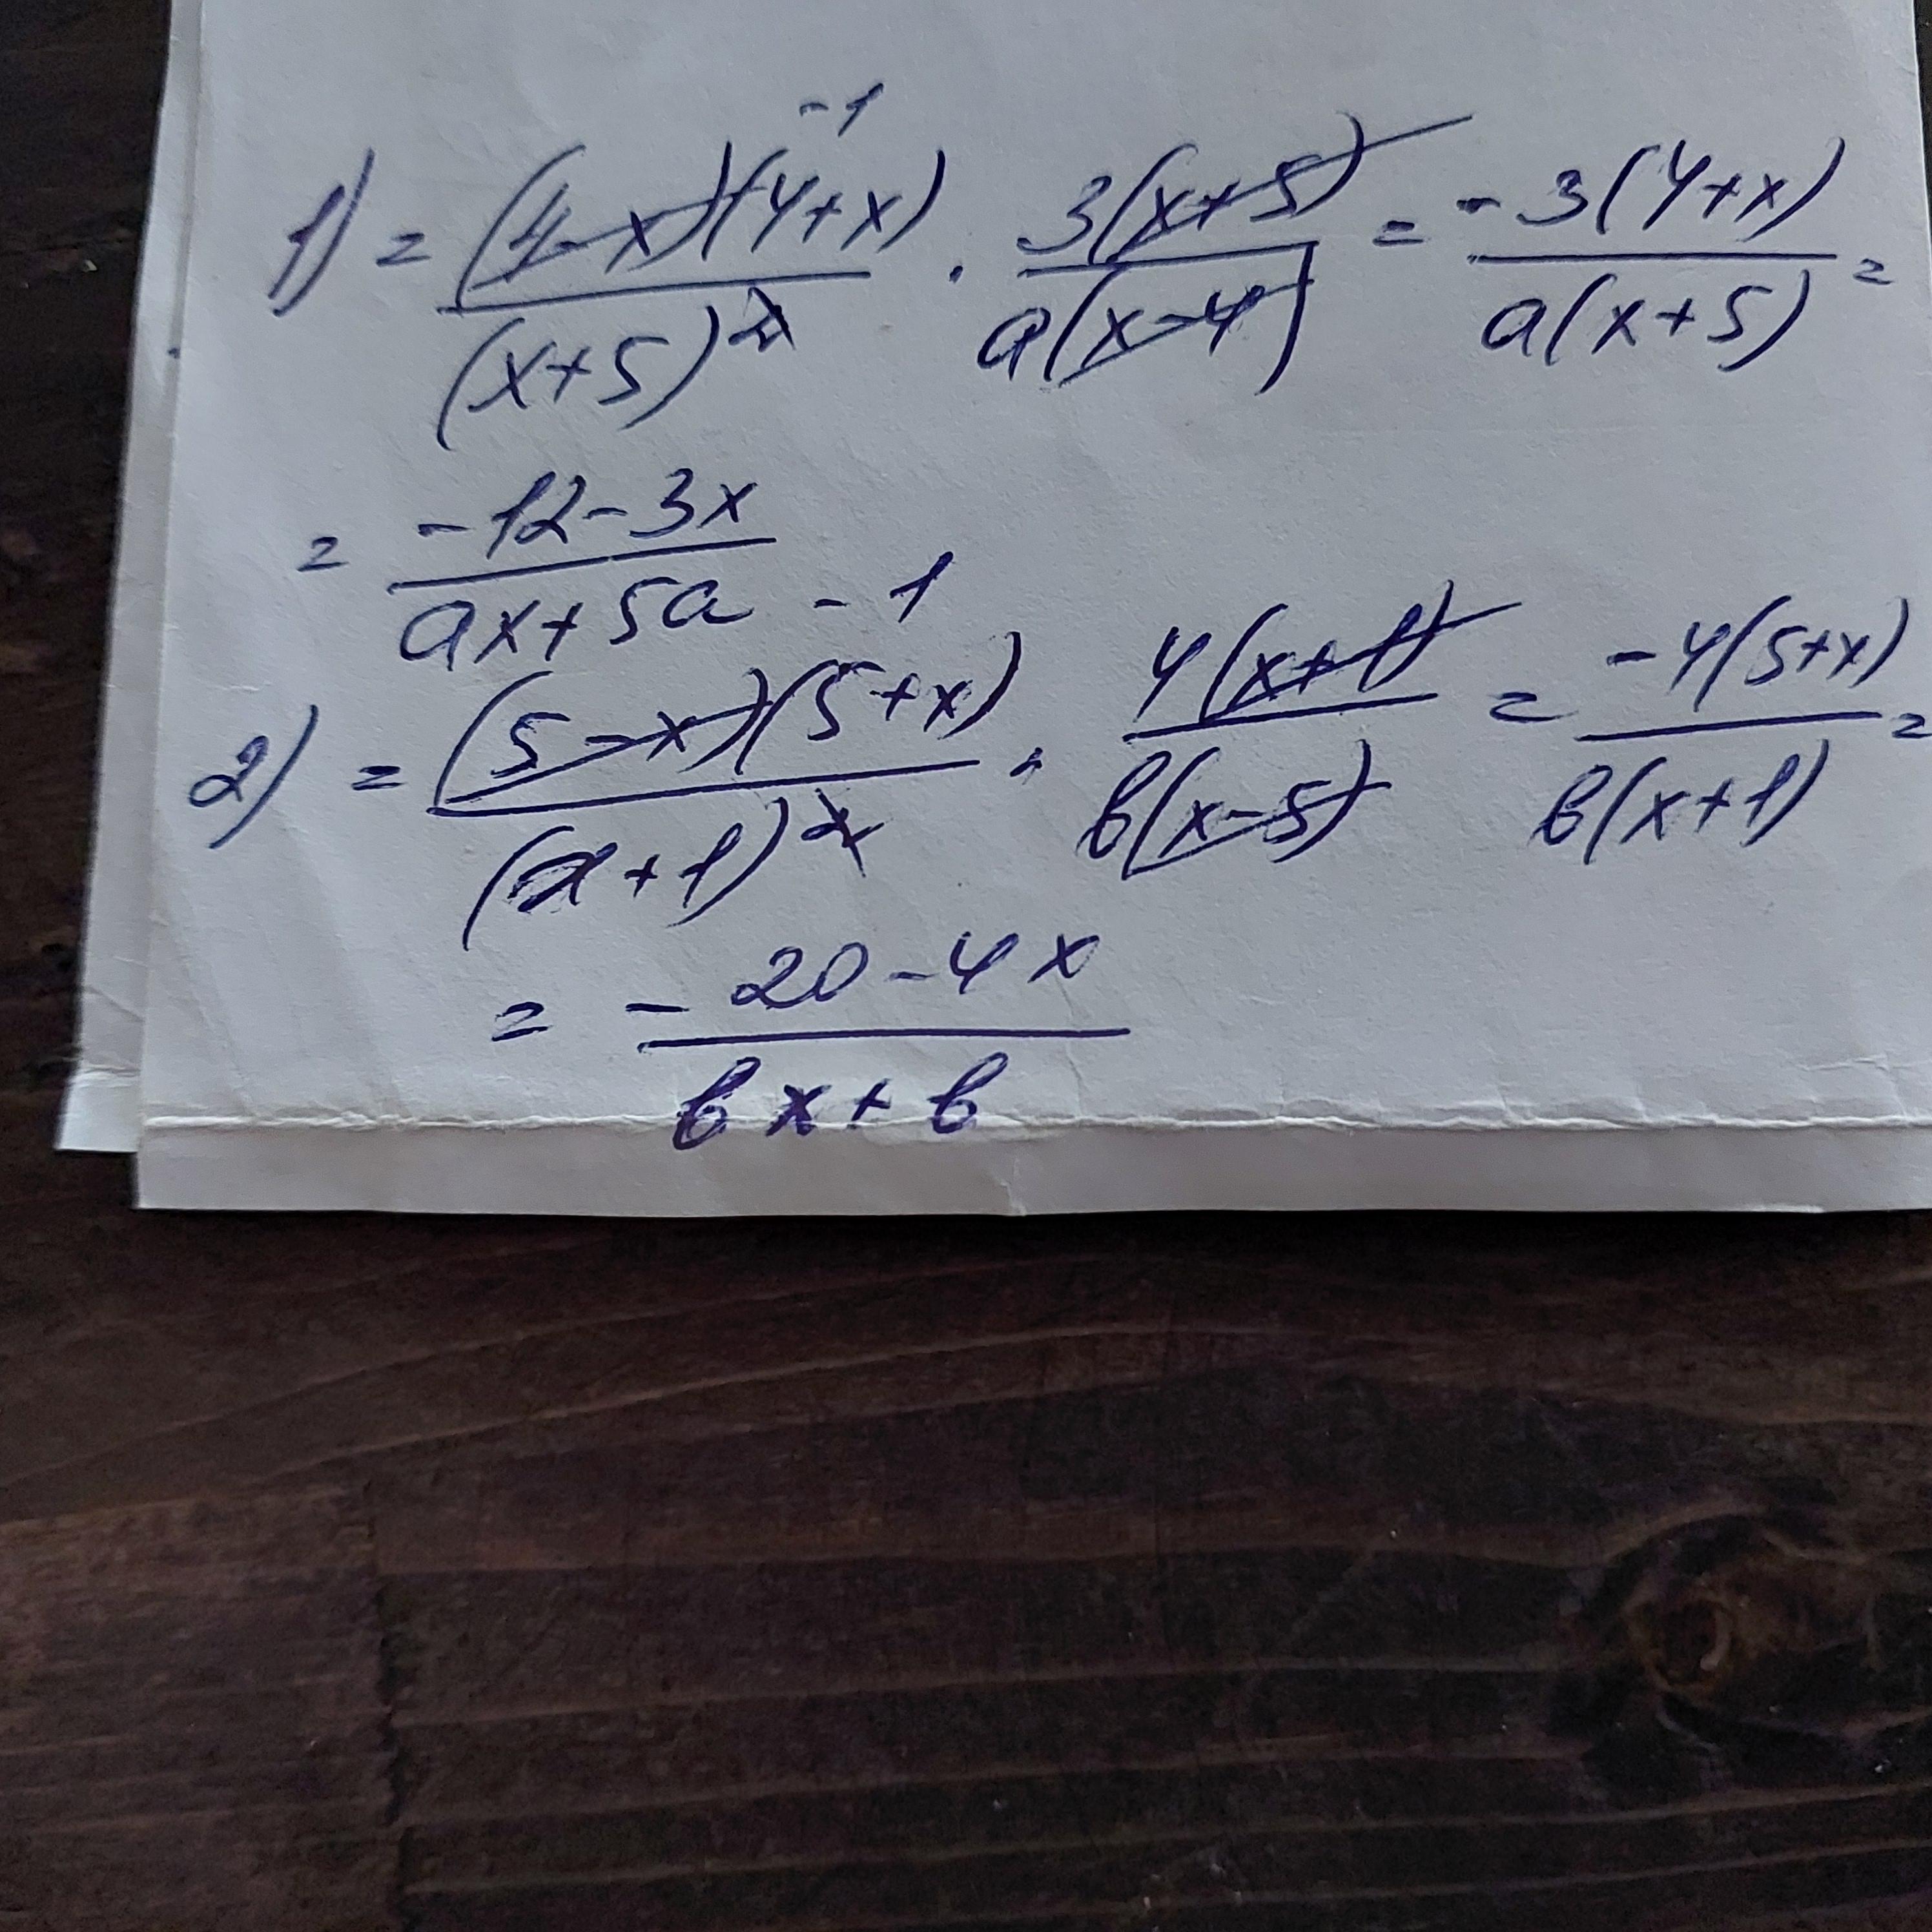 1) = (4-x)(4+x)/(x+5)² · 3(x+5)/a(x-4) = -3(4+x)/a(x+5) =
-1
= -12-3x/ax+5a
2) = (5-x)(5+x)/(x+1)² · 4(x+1)/b(x-5) = -4(5+x)/b(x+1) =
-1
= -20-4x/bx+b